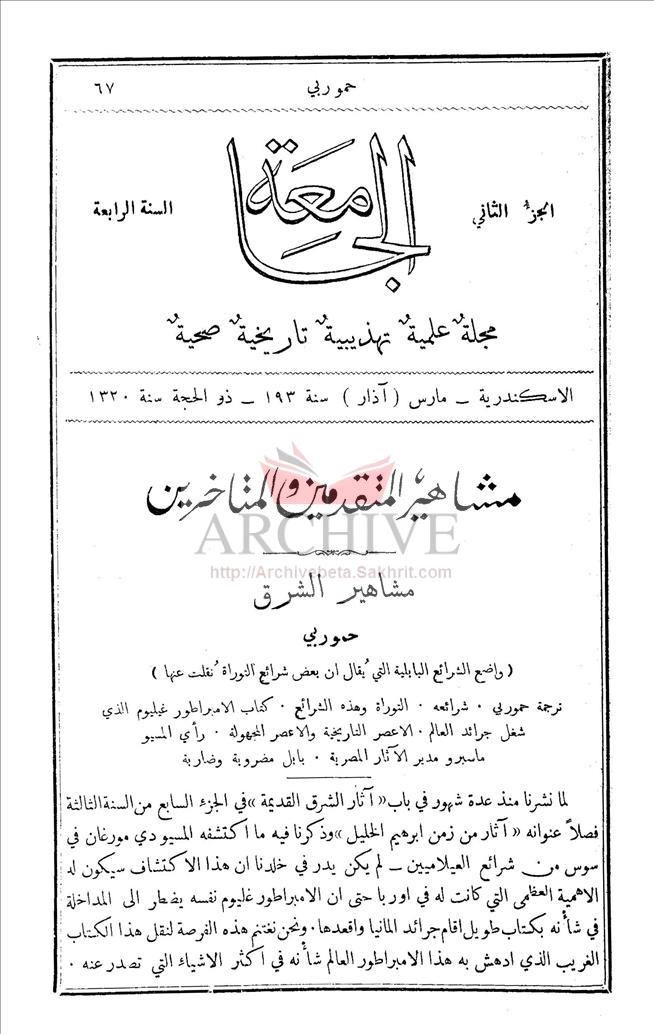 حموربي ٦٧
الجزء الثاني الجامعة السنة الرابعة
مجلة علمية تهذيبية تاريخية صحية
الاسكندرية ـ مارس ( آذار ) سنة ١٩٣ ـ ذو الحجة سنة ١٣٢٠
مشاهير المتقدمين والمتاخرين
ARCHIVE
http://Archivebeta.Sakhrit.com
مشاهير الشرق
حموربي
( واضع الشرائع البابلية التي يُقال ان بعض شرائع التوراة نُقلت عنها )
ترجمة حموربي ٠ شرائعه ٠ التوراة وهذه الشرائع ٠ كتاب الامبراطور غيليوم الذي
شغل جرائد العالم ٠ الاعصر التاريخية والاعصر المجهولة ٠ رأي المسيو
ماسبرو مدير الآثار المصرية ٠ بابل مضروبة وضاربة
لما نشرنا منذ عدة شهور في باب « آثار الشرق القديمة » في الجزء السابع من السنة الثالثة
فصلاً عنوانه « آثار من زمن ابرهيم الخليل » وذكرنا فيه ما اكتشفه المسيو دي مورغان في
سوس من شرائع العيلاميين ـ لم يكن يدر في خلدنا ان هذا الاكتشاف سيكون له
الاهمية العظمى التي كانت له في اوربا حتى ان الامبراطور غليوم نفسه يضطر الى المداخلة
في شأنه بكتاب طويل اقام جرائد المانيا واقعدها ٠ ونحن نغتنم هذه الفرصة لنقل هذا الكتاب
الغريب الذي ادهش به هذا الامبراطور العالم شأنه في أكثر الاشياء التي تصدر عنه ٠